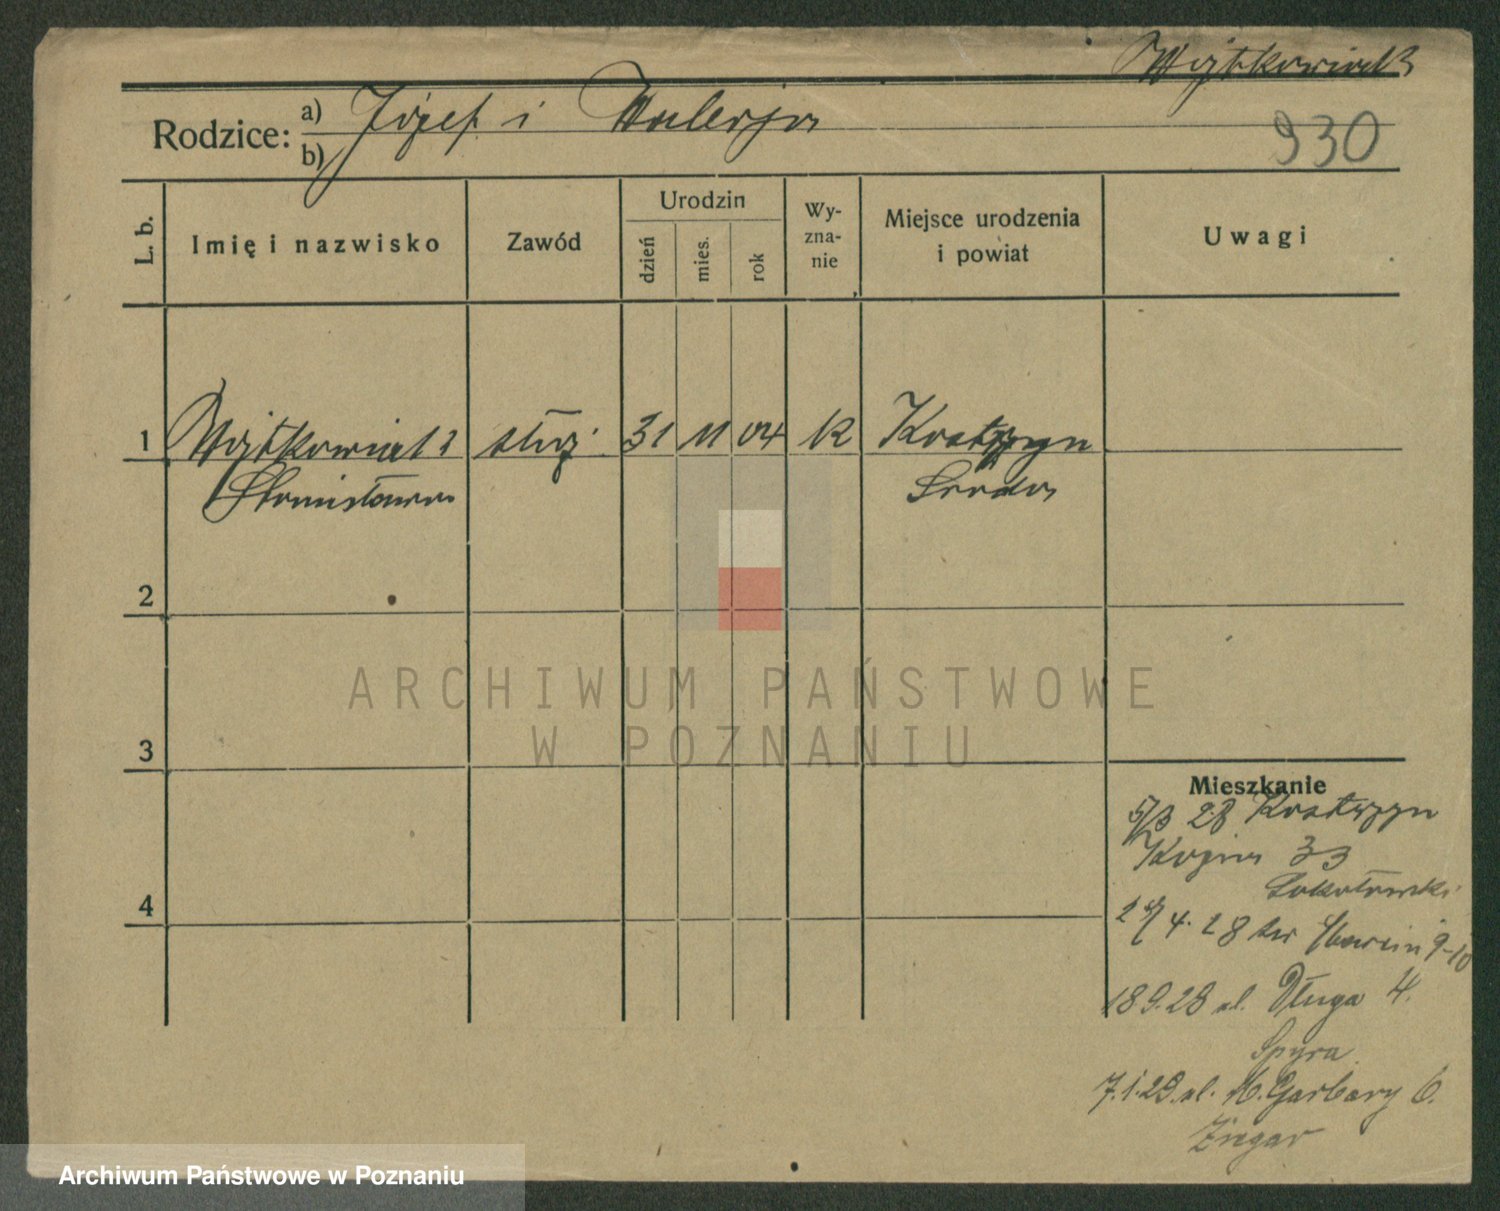 Wojtkowiak
Rodzice:
a) Józef i Walerja
b)
930
L. b.
Imię i nazwisko
Zawód
Urodzin
dzień
mies.
rok
Wy-
zna-
nie
Miejsce urodzenia
i powiat
Uwagi
1 Wojtkowiak służ. 31 11 04 K Kostrzyn
Stanisława Środa
2
3
4
Mieszkanie
28 Kostrzyn
33
Sokołowski
4. 28 św Marcin 9-10
18.9.28 ul. Długa 4.
Spyra
7.1.29. ul. M. Garbary 6.
ARCHIWUM PAŃSTWOWE
W POZNANIU
Archiwum Państwowe w Poznaniu